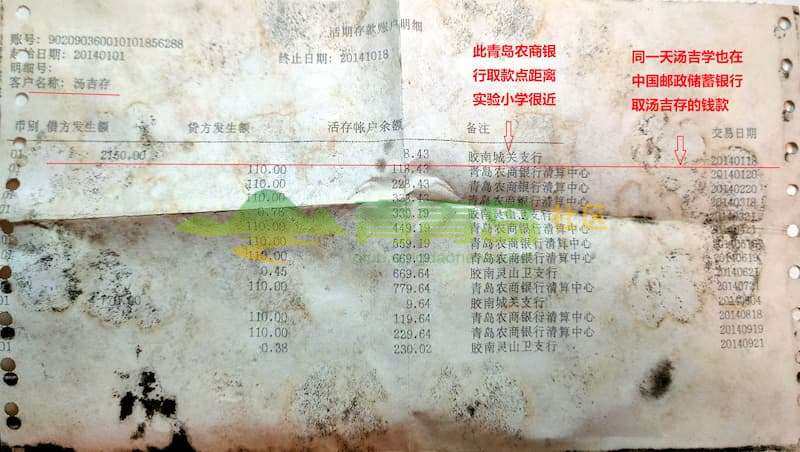 活期存款账户明细
账号: 9020903600101018​56288
起始日期: 20140101 终止日期: 20141018
明细号:
客户名称: 汤吉存
此青岛农商银
行取款点距离
实验小学很近
同一天汤吉学也在
中国邮政储蓄银行
取汤吉存的钱款
币别 借方发生额 贷方发生额 活存账户余额 备注 交易日期
01 2150.00 8.43 胶南城关支行 20140118
110.00 118.43 青岛农商银行清算中心 20140120
110.00 228.43 青岛农商银行清算中心 20140220
110.00 青岛农商银行清算中心 20140318
0.76 胶南灵山卫支行 20140321
110.00 449.19 青岛农商银行清算中心
110.00 559.19 青岛农商银行清算中心
110.00 669.19 青岛农商银行清算中心 20140619
0.45 669.64 胶南灵山卫支行 20140621
110.00 779.64 青岛农商银行清算中心 20140721
01 9.64 胶南城关支行 20140804
01 110.00 119.64 青岛农商银行清算中心 20140818
01 110.00 229.64 青岛农商银行清算中心 20140919
01 0.38 230.02 胶南灵山卫支行 20140921